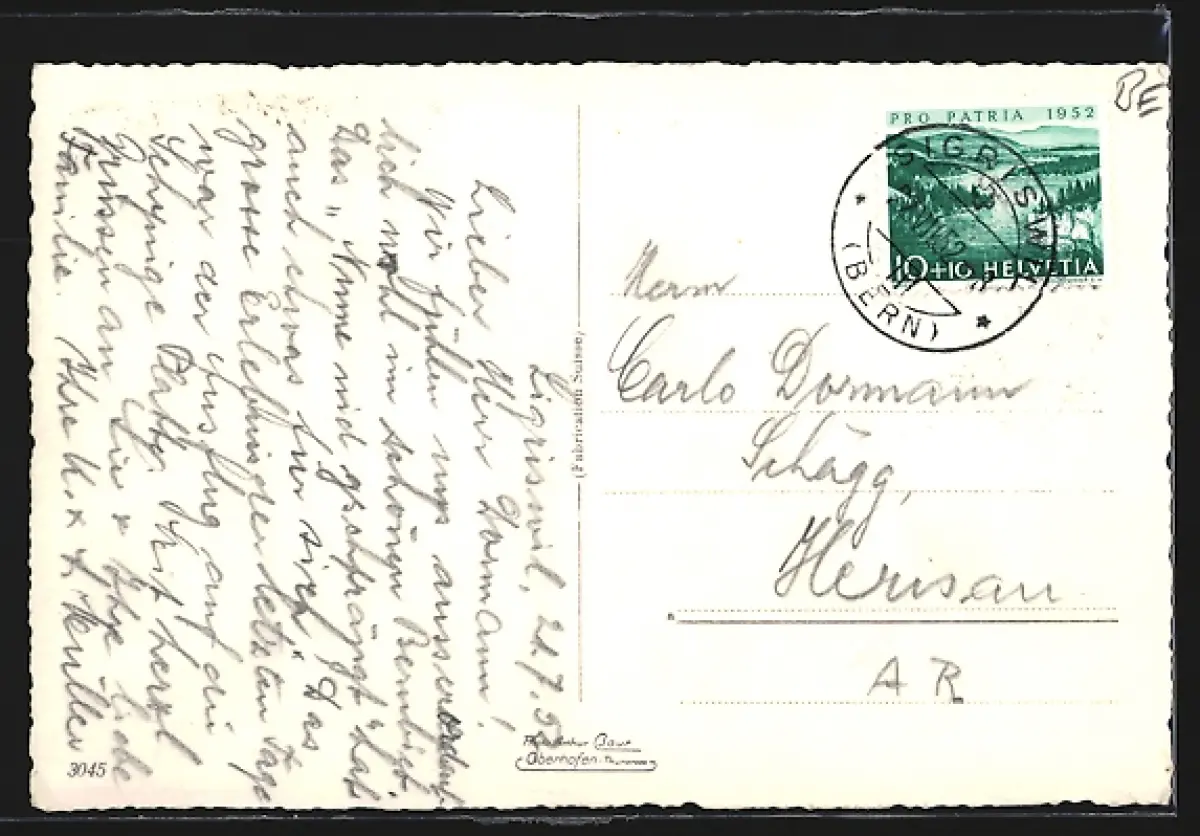 Sigriswil, 21.7.52
Lieber Herr Dormann!
Wir fühlen uns ausserordent-
lich wohl im schönen Bernbiet.
Das "Nume nid gsprängt" hat
auch etwas für sich! Das
grosse Erlebnis der letzten Tage
war der Ausflug auf die
Schynige Platte. Mit herzl
Grüssen an Sie & Ihre liebe
Familie. Ihre
PRO PATRIA 1952
10+10 HELVETIA
SIGRISWIL
(BERN)
BE
Herrn
Carlo Dormann
Schägg,
Herisau
AR
(Fabrication Suisse)
Oberhofen
3045